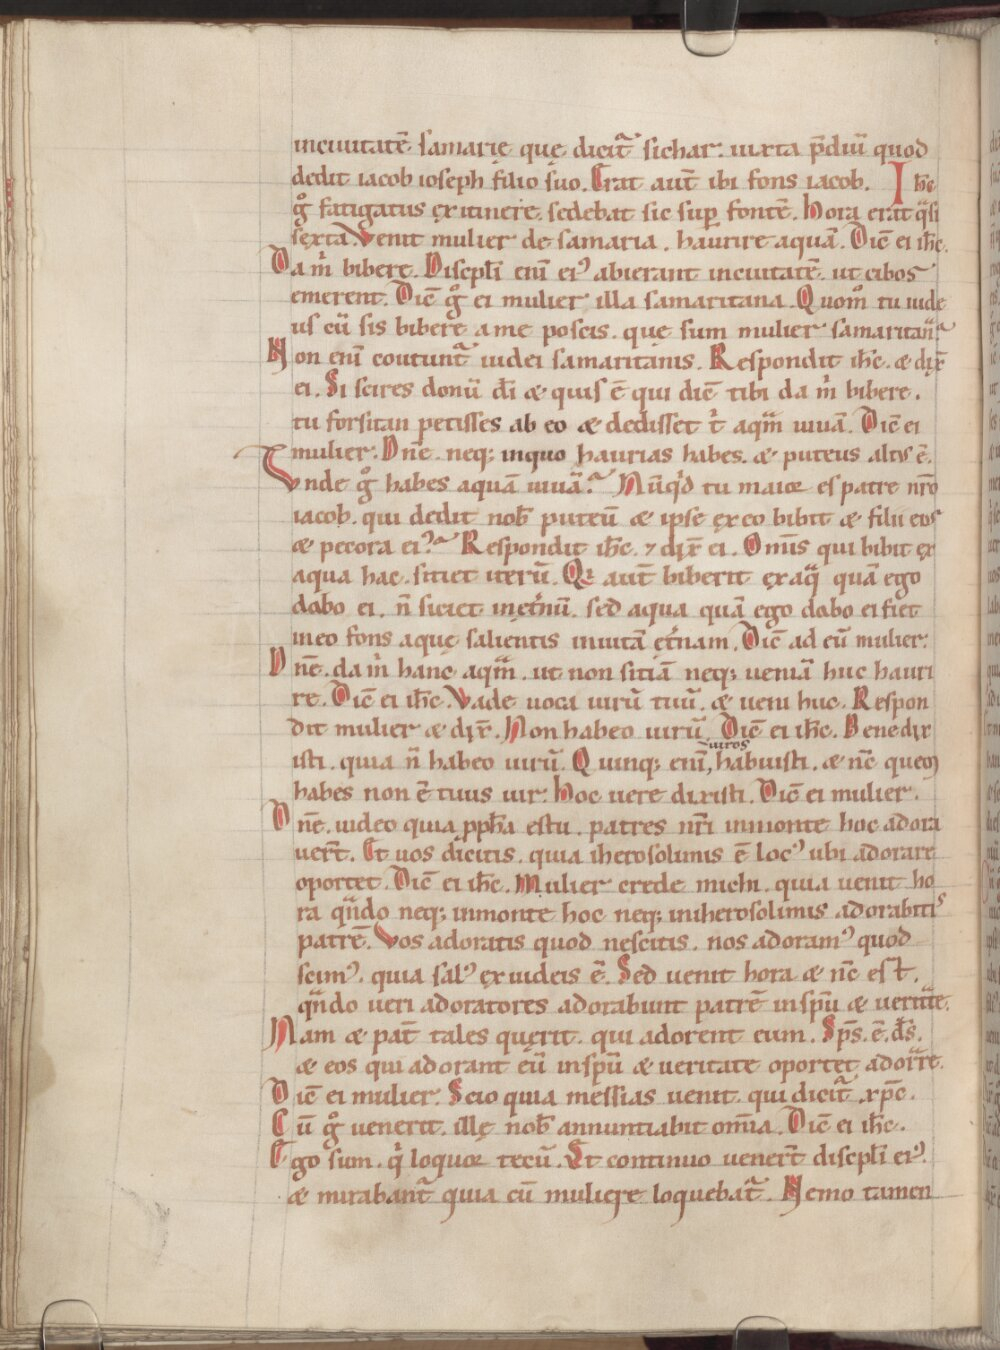 inciuitatē. samarię quę dicit᷑ sichar. iuxta p̄diū quod
dedit iacob ioseph filio suo. Erat aut̄ ibi fons iacob. Ihc̄
g̊ fatigatus ex itinere. sedebat sic sup̱ fontē. Hora erat q̄si
sexta. Venit mulier de samaria. haurire aquā. Dic̄ ei ih̄c.
Da m̄ bibere. Discipl̄i eni᷑ ei᾽ abierant inciuitatē. ut cibos
emerent. Dic̄ g̊ ei mulier illa samaritana. Quom̊ tu iude
us cū sis bibere ame poscis. quę sum mulier samaritana?
Non eni᷑ coutunt᷑ iudei samaritanis. Respondit ih̄c. & dix̄
ei. Si scires donū d̄i & quis ē qui dic̄ tibi da m̄ bibere.
tu forsitan petisses ab eo & dedisset t̄ aquā uiuā. Dic̄ ei
mulier. Dn̄e. neq; inquo haurias habes. & puteus altus ē.
Vnde g̊ habes aquā uiuā? Nūq᷑d tu maior es patre nr̄o
iacob. qui dedit nob̄ puteū & ipse ex eo bibit & filii eius
& pecora ei᾽? Respondit ih̄c. ⁊ dix̄ ei. Omīs qui bibit ex
aqua hac. sitiet iterū. Qi aut̄ biberit ex aq̄ quā ego
dabo ei. n̄ siciet inet̄nū. sed aqua quā ego dabo ei fiet
ineo fons aquę salientis inuitā et̄nam. Dic̄ ad eū mulier.
Dn̄e. da m̄ hanc aquā. ut non sitiā neq; ueniā huc hauri
re. Dic̄ ei ih̄c. Vade uoca uirū tuū. & ueni huc. Respon
dit mulier & dix̄. Non habeo uirū. Dic̄ ei ih̄c. Benedix
isti. quia n̄ habeo uirū. Quinq; eni᷑, uiros habuisti. & nc̄ quem
habes non ē tuus uir. Hoc uere dixisti. Dic̄ ei mulier.
Dn̄e. uideo quia pph̄a es tu. patres nr̄i inmonte hoc adora
uer̄t. Et uos dicitis. quia iherosolimis ē loc᾽ ubi adorare
oportet. Dic̄ ei ih̄c. Mulier crede michi. quia uenit ho
ra qn̄do neq; inmonte hoc neq; iniherosolimis adorabitis
patrē. Vos adoratis quod nescitis. nos adoram᾽ quod
scim᾽. quia sal᾽ ex iudeis ē. Sed uenit hora & nc̄ est.
qn̄do ueri adoratores adorabunt patrē inspū & ueritate.
Nam & pat̄ tales querit. qui adorent eum. Sps̄. ē. ds̄.
& eos qui adorant eū inspū & ueritate oportet adorare.
Dic̄ ei mulier. Scio quia messias uenit. qui dicit᷑ xpc̄.
Cū g̊ uenerit. ille nob̄ annuntiabit om̄ia. Dic̄ ei ih̄c.
Ego sum. q̄ loquor tecū. Et continuo uener̄t discipl̄i ei᾽.
& mirabant᷑ quia cū muliere loquebat᷑. Nemo tamen